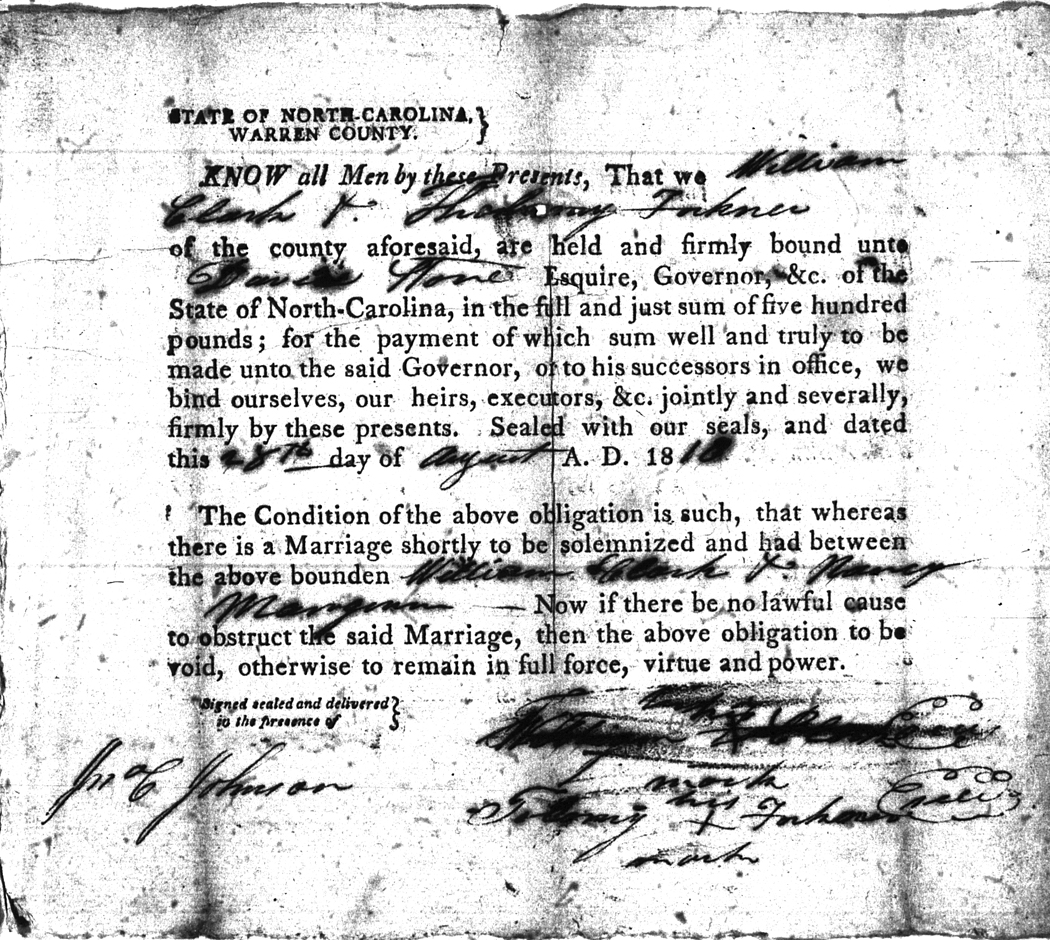 STATE OF NORTH-CAROLINA,
WARREN COUNTY.
KNOW all Men by these Presents, That we William
Clark &
of the county aforesaid, are held and firmly bound unto
David Stone Esquire, Governor, &c. of the
State of North-Carolina, in the full and just sum of five hundred
pounds; for the payment of which sum well and truly to be
made unto the said Governor, or to his successors in office, we
bind ourselves, our heirs, executors, &c. jointly and severally,
firmly by these presents. Sealed with our seals, and dated
this 28th day of August A. D. 1810
The Condition of the above obligation is such, that whereas
there is a Marriage shortly to be solemnized and had between
the above bounden William Clark & Nancy
Mangum — Now if there be no lawful cause
to obstruct the said Marriage, then the above obligation to be
void, otherwise to remain in full force, virtue and power.
Signed sealed and delivered
in the presence of
his
William X Clark
mark
Jno C Johnson
his
X
mark